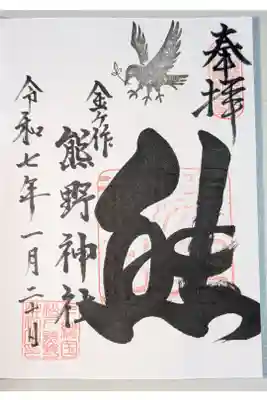 奉拝
熊
金ケ作
熊野神社
令和七年一月二十日